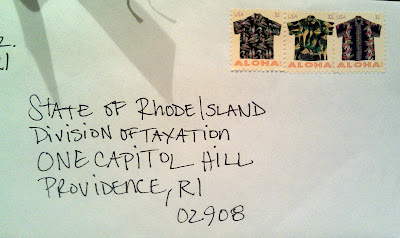 2.
RI
USA 32 USA 32 USA 32
ALOHA! ALOHA! ALOHA!
STATE OF RHODE ISLAND
DIVISION OF TAXATION
ONE CAPITOL HILL
PROVIDENCE, RI
02908